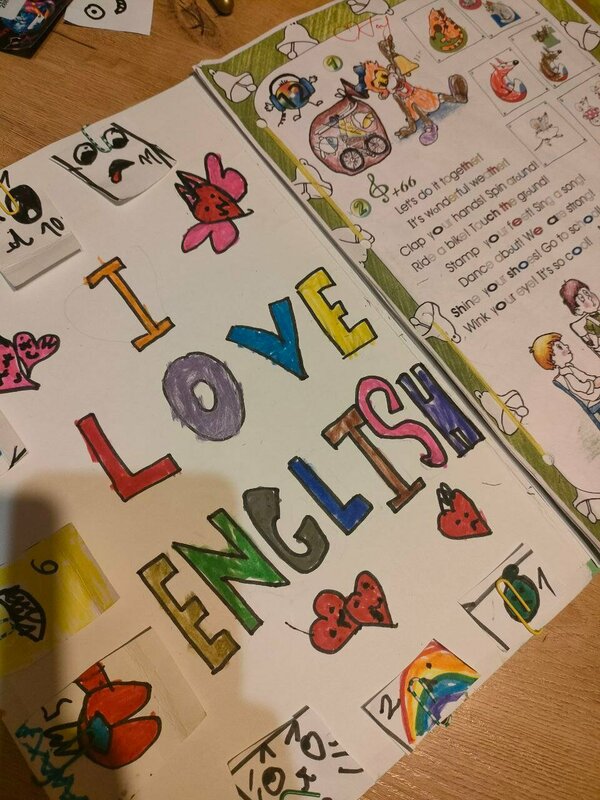 I
LOVE
ENGLISH
10
9
5
2
1
1
2
+66
Let's do it together!
It's wonderful weather!
Clap your hands! Spin around!
Ride a bike! Touch the ground!
Stamp your feet! Sing a song!
Dance about! We are strong!
Shine your shoes! Go to school!
Wink your eye! It's so cool!